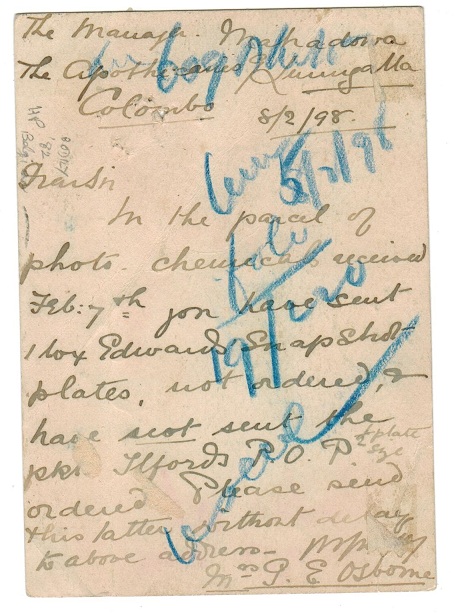 The Manager. Mahadowa
The Apothecaries
Colombo 8/2/98.
Dear Sir
In the parcel of
photo. chemicals received
Feb: 7th you have sent
1 box Edwards Snap Shot
plates, not ordered, &
have not sent the
pkt Ilfords P.O.P. ½ plate
size
ordered Please send
this latter without delay
to above address
Mrs P. E Osborne
folio
19/220